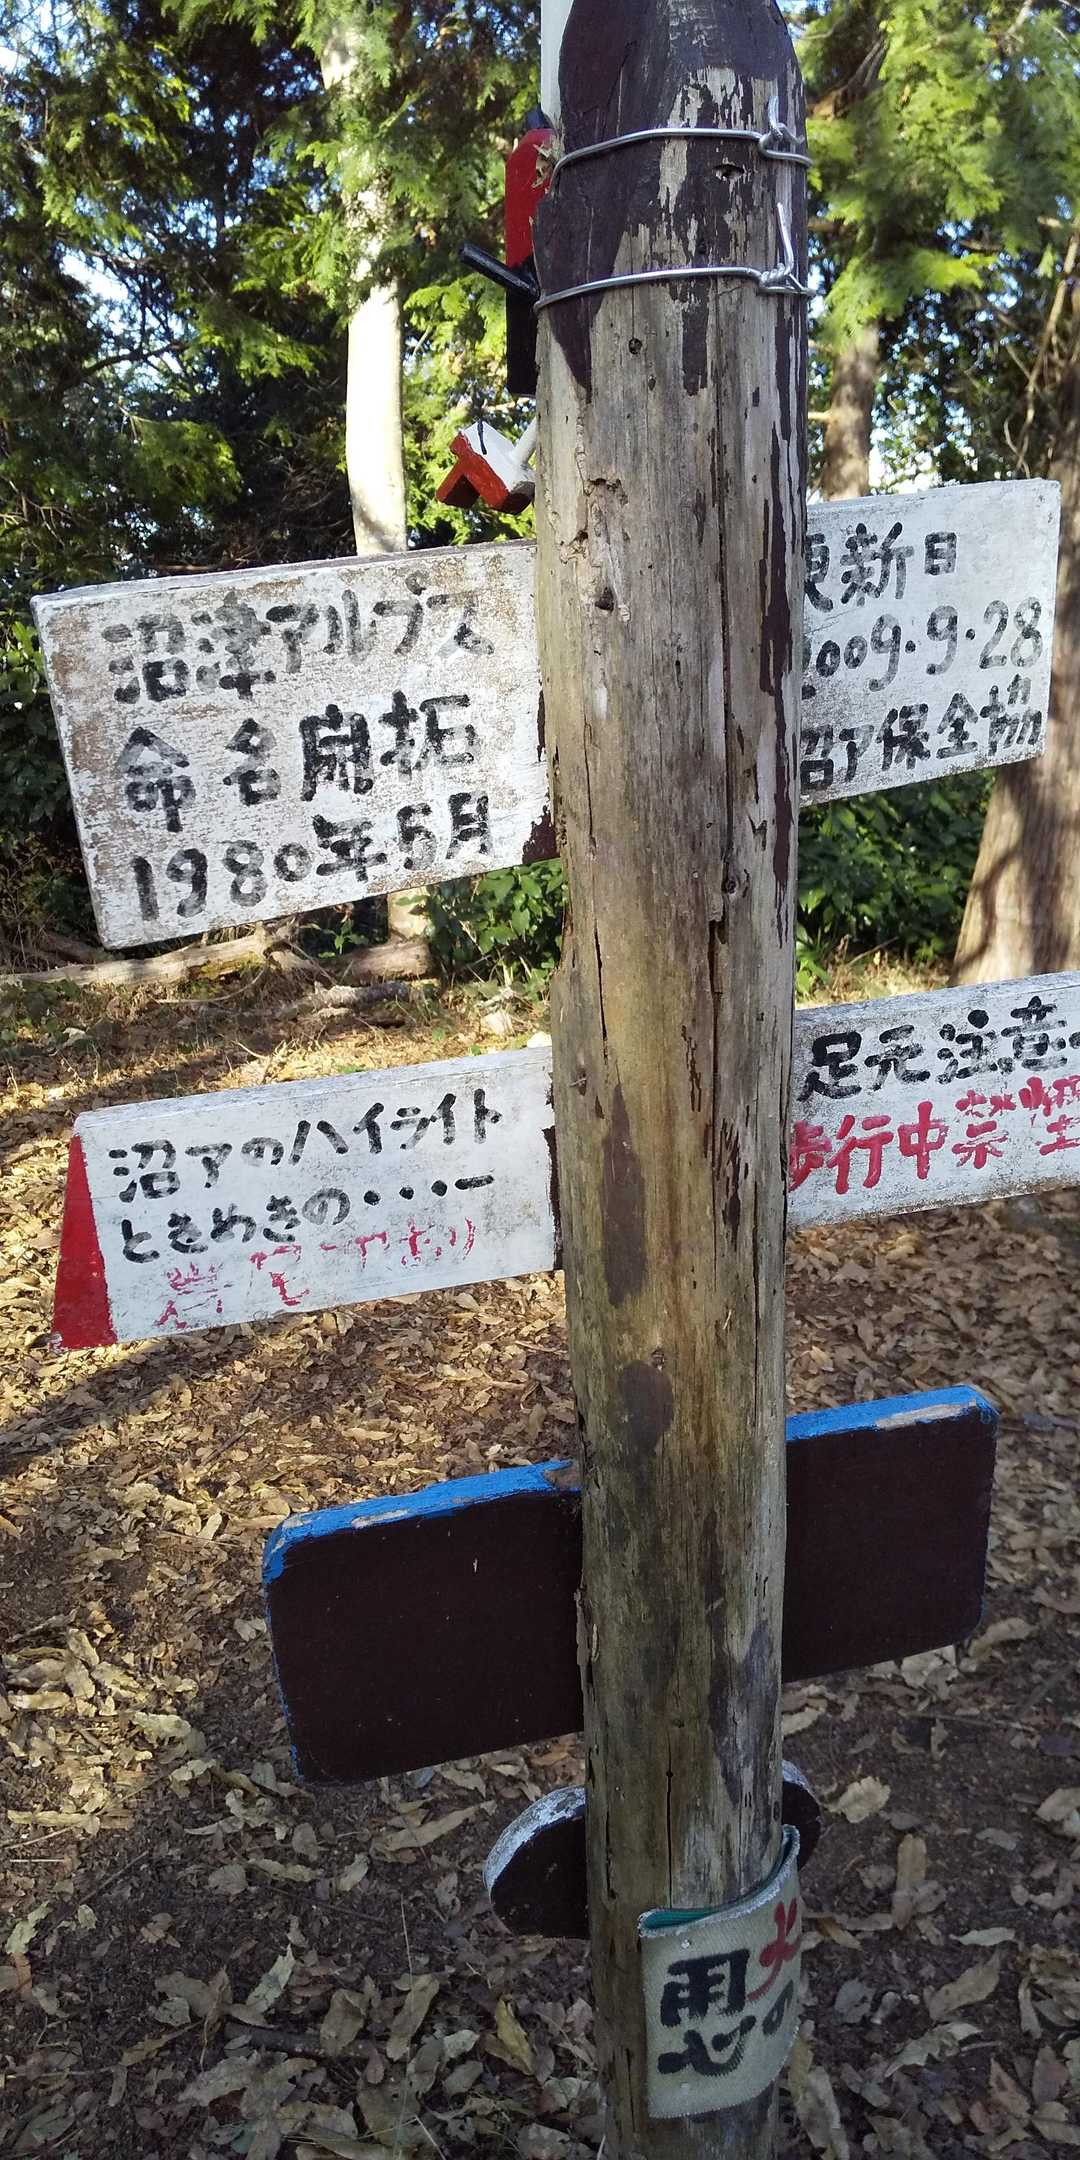 沼津アルプス
命名開拓
1980年5月
更新日
2009.9.28
沼ア保全協
沼アのハイライト
ときめきの・・・ー
足元注意
歩行中禁煙
火の
用心